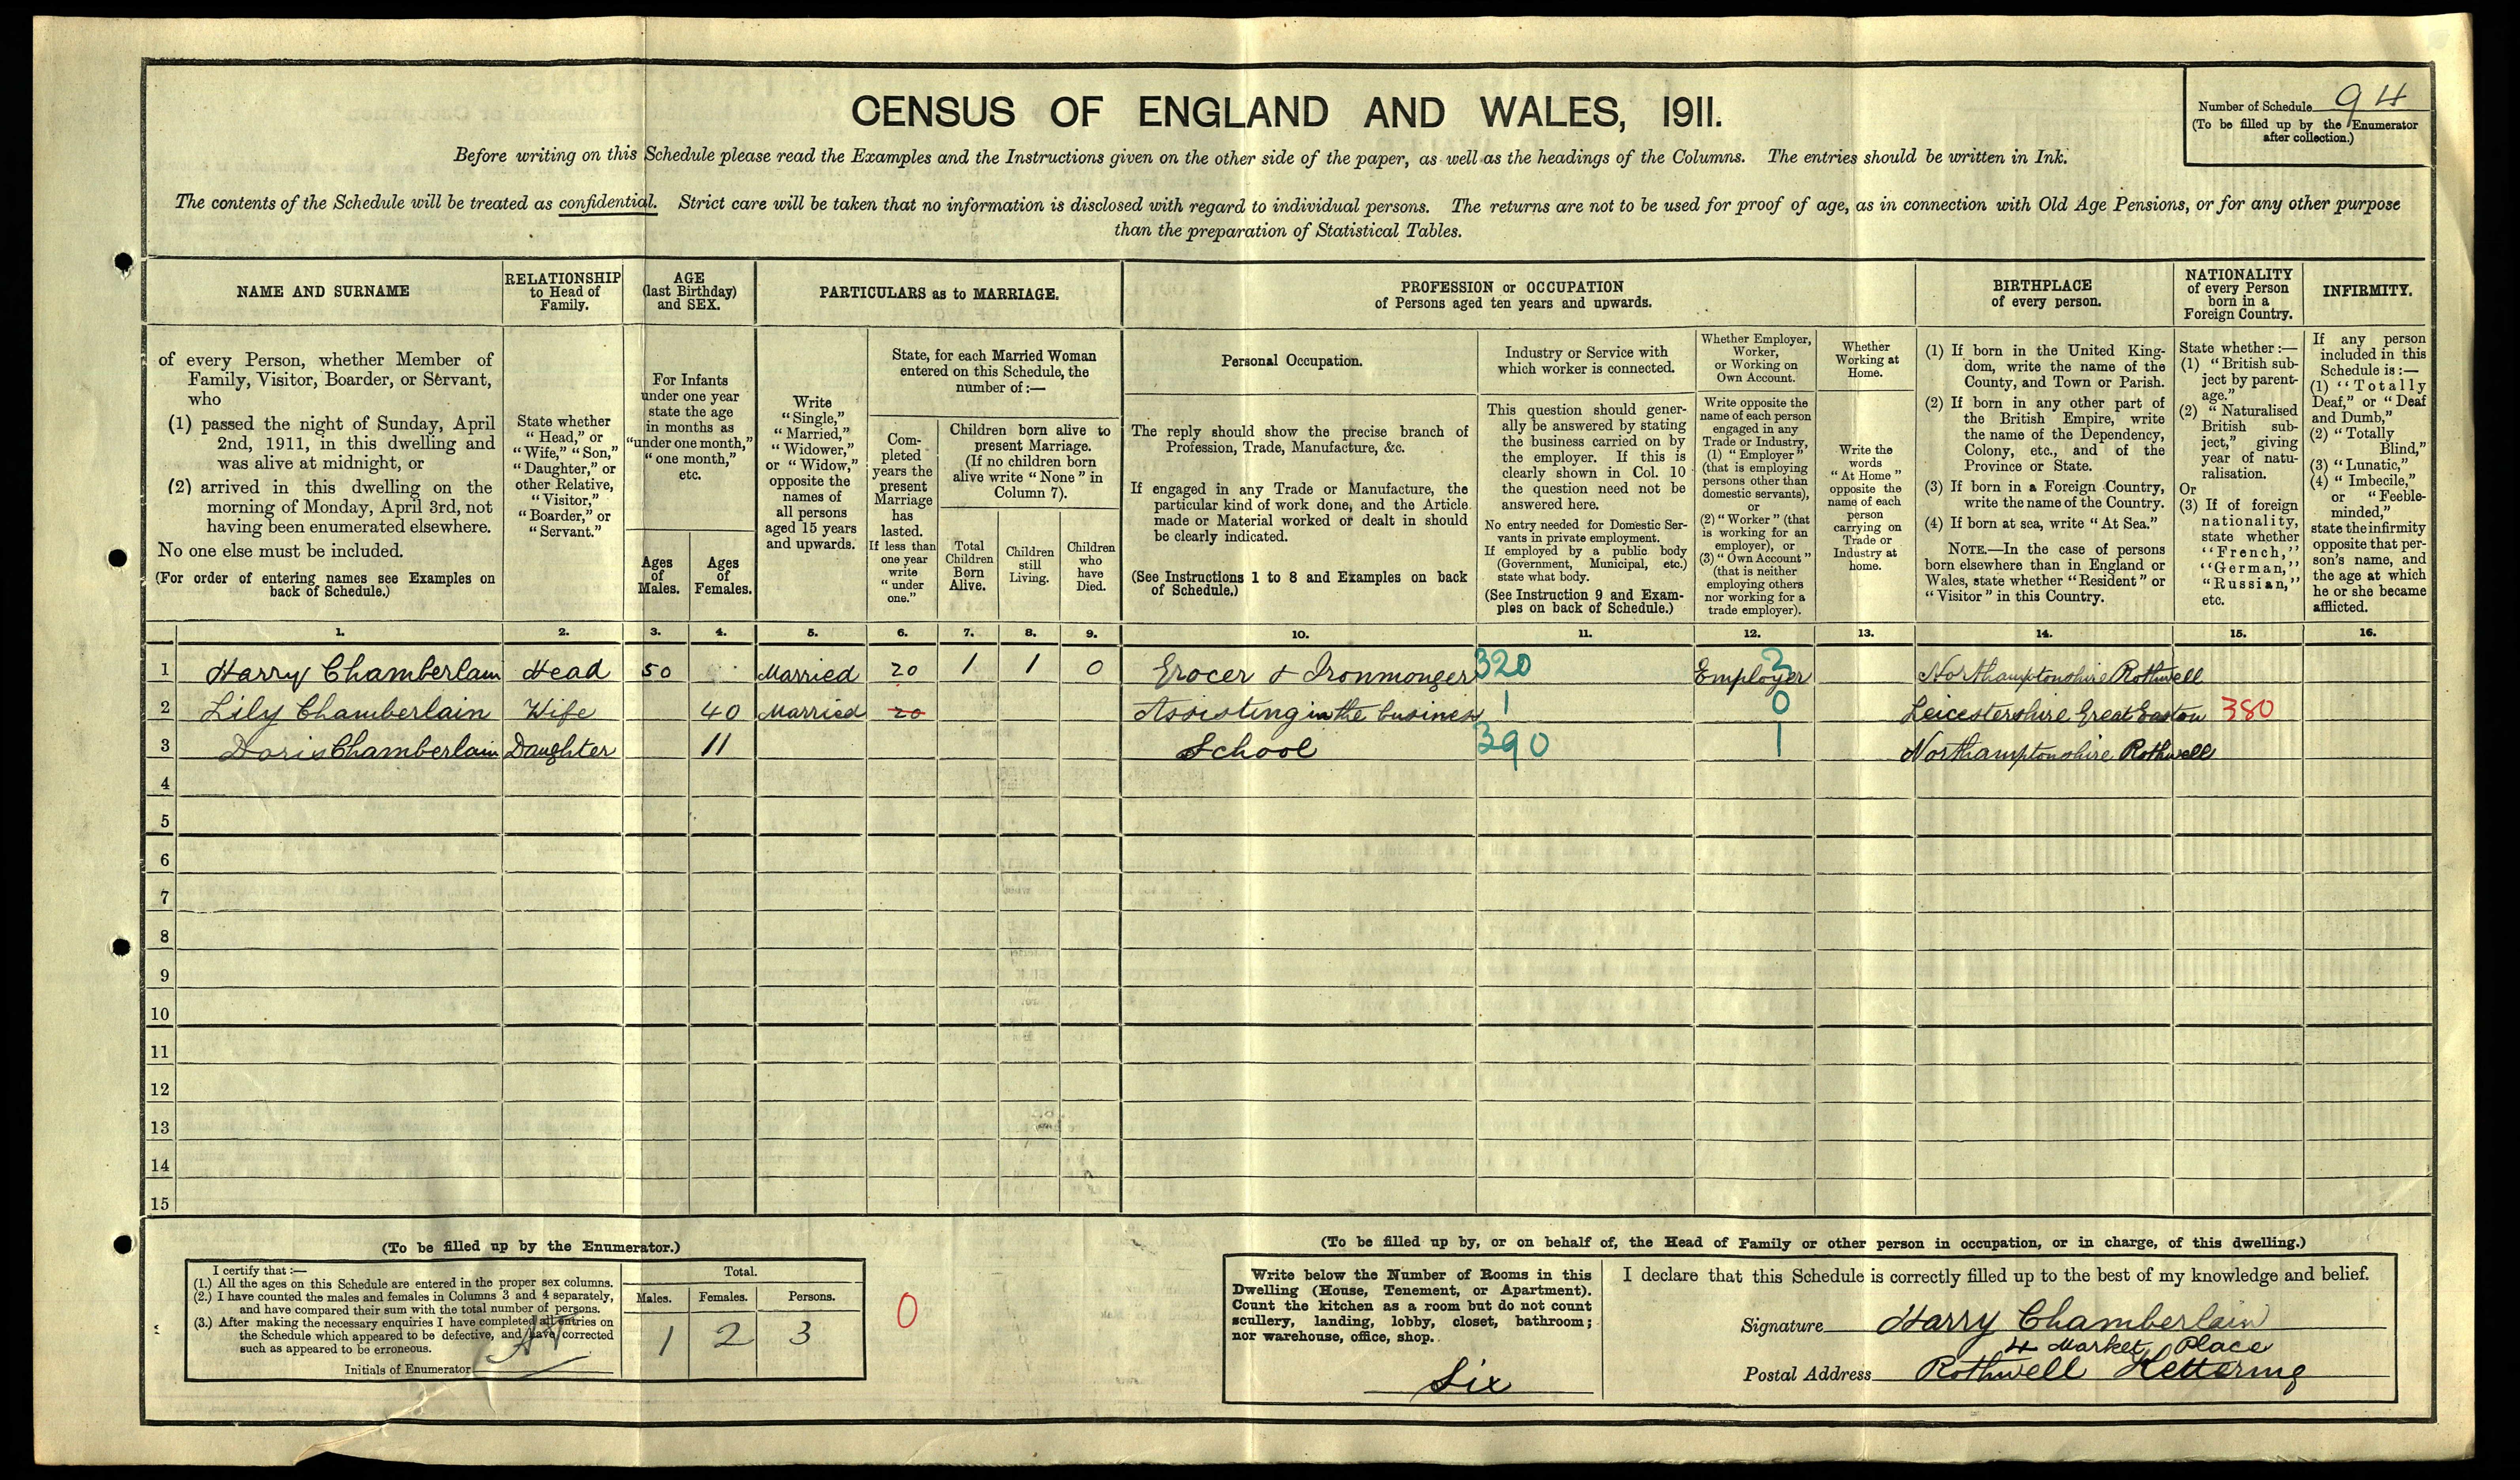 CENSUS OF ENGLAND AND WALES, 1911.
Number of Schedule 94
(To be filled up by the Enumerator
after collection.)
Before writing on this Schedule please read the Examples and the Instructions given on the other side of the paper, as well as the headings of the Columns. The entries should be written in Ink.
The contents of the Schedule will be treated as confidential. Strict care will be taken that no information is disclosed with regard to individual persons. The returns are not to be used for proof of age, as in connection with Old Age Pensions, or for any other purpose
than the preparation of Statistical Tables.
NAME AND SURNAME
RELATIONSHIP
to Head of
Family.
AGE
(last Birthday)
and SEX.
PARTICULARS as to MARRIAGE.
PROFESSION or OCCUPATION
of Persons aged ten years and upwards.
BIRTHPLACE
of every person.
NATIONALITY
of every Person
born in a
Foreign Country.
INFIRMITY.
of every Person, whether Member of
Family, Visitor, Boarder, or Servant,
who
(1) passed the night of Sunday, April
2nd, 1911, in this dwelling and
was alive at midnight, or
(2) arrived in this dwelling on the
morning of Monday, April 3rd, not
having been enumerated elsewhere.
No one else must be included.
(For order of entering names see Examples on
back of Schedule.)
State whether
"Head," or
"Wife," "Son,"
"Daughter," or
other Relative,
"Visitor,"
"Boarder," or
"Servant."
For Infants
under one year
state the age
in months as
"under one month,"
"one month,"
etc.
Ages
of
Males.
Ages
of
Females.
Write
"Single,"
"Married,"
"Widower,"
or "Widow,"
opposite the
names of
all persons
aged 15 years
and upwards.
State, for each Married Woman
entered on this Schedule, the
number of:—
Com-
pleted
years the
present
Marriage
has
lasted.
If less than
one year
write
"under
one."
Children born alive to
present Marriage.
(If no children born
alive write "None" in
Column 7).
Total
Children
Born
Alive.
Children
still
Living.
Children
who
have
Died.
Personal Occupation.
The reply should show the precise branch of
Profession, Trade, Manufacture, &c.
If engaged in any Trade or Manufacture, the
particular kind of work done, and the Article
made or Material worked or dealt in should
be clearly indicated.
(See Instructions 1 to 8 and Examples on back
of Schedule.)
Industry or Service with
which worker is connected.
This question should gener-
ally be answered by stating
the business carried on by
the employer. If this is
clearly shown in Col. 10
the question need not be
answered here.
No entry needed for Domestic Ser-
vants in private employment.
If employed by a public body
(Government, Municipal, etc.)
state what body.
(See Instruction 9 and Exam-
ples on back of Schedule.)
Whether Employer,
Worker,
or Working on
Own Account.
Write opposite the
name of each person
engaged in any
Trade or Industry,
(1) "Employer"
(that is employing
persons other than
domestic servants),
or
(2) "Worker" (that
is working for an
employer), or
(3) "Own Account"
(that is neither
employing others
nor working for a
trade employer).
Whether
Working at
Home.
Write the
words
"At Home"
opposite the
name of each
person
carrying on
Trade or
Industry at
home.
(1) If born in the United King-
dom, write the name of the
County, and Town or Parish.
(2) If born in any other part of
the British Empire, write
the name of the Dependency,
Colony, etc., and of the
Province or State.
(3) If born in a Foreign Country,
write the name of the Country.
(4) If born at sea, write "At Sea."
NOTE.—In the case of persons
born elsewhere than in England or
Wales, state whether "Resident" or
"Visitor" in this Country.
State whether:—
(1) "British sub-
ject by parent-
age."
(2) "Naturalised
British sub-
ject," giving
year of natu-
ralisation.
Or
(3) If of foreign
nationality,
state whether
"French,"
"German,"
"Russian,"
etc.
If any person
included in this
Schedule is:—
(1) "Totally
Deaf," or "Deaf
and Dumb,"
(2) "Totally
Blind,"
(3) "Lunatic,"
(4) "Imbecile,"
or "Feeble-
minded,"
state the infirmity
opposite that per-
son's name, and
the age at which
he or she became
afflicted.
1. 2. 3. 4. 5. 6. 7. 8. 9. 10. 11. 12. 13. 14. 15. 16.
1 Harry Chamberlain Head 50 Married 20 1 1 0 Grocer & Ironmonger 320 Employer 2 Northamptonshire Rothwell
2 Lily Chamberlain Wife 40 Married 20 Assisting in the business 1 0 Leicestershire Great Easton 380
3 Doris Chamberlain Daughter 11 School 390 1 Northamptonshire Rothwell
4
5
6
7
8
9
10
11
12
13
14
15
(To be filled up by the Enumerator.)
I certify that:—
(1.) All the ages on this Schedule are entered in the proper sex columns.
(2.) I have counted the males and females in Columns 3 and 4 separately,
and have compared their sum with the total number of persons.
(3.) After making the necessary enquiries I have completed all entries on
the Schedule which appeared to be defective, and have corrected
such as appeared to be erroneous.
Initials of Enumerator
Total.
Males. Females. Persons.
1 2 3
0
(To be filled up by, or on behalf of, the Head of Family or other person in occupation, or in charge, of this dwelling.)
Write below the Number of Rooms in this
Dwelling (House, Tenement, or Apartment).
Count the kitchen as a room but do not count
scullery, landing, lobby, closet, bathroom;
nor warehouse, office, shop.
Six
I declare that this Schedule is correctly filled up to the best of my knowledge and belief.
Signature Harry Chamberlain
4 Market Place
Postal Address Rothwell Kettering